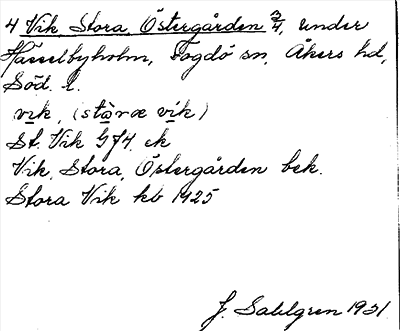 4 Vik, Stora, Östergården 3/4, under
Hässelbyholm, Fogdö sn, Åkers hd,
Söd. l.
vik, (stɑ̀ræ vík)
St. Vik GJ4, ek
Vik, Stora, Östergården bek.
Stora Vik kb 1925
J. Sahlgren 1931